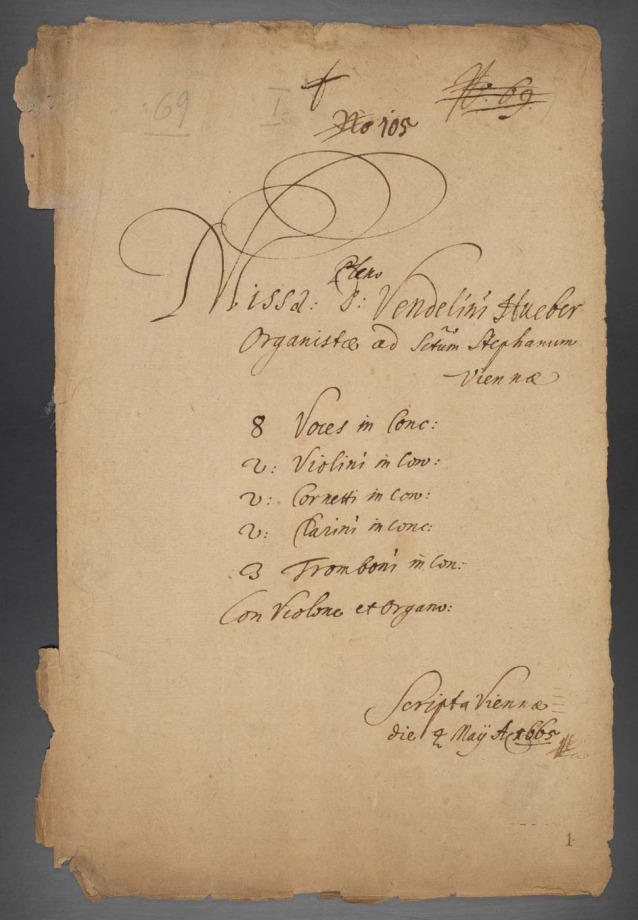 69 I
No. 69.
No 105
Missa: S: Vendelini Hueber
Organistæ ad Sctum Stephanum
Viennæ
8 Voces in Conc:
2: Violini in Con:
2: Cornetti in Con:
2: Clarini in Conc:
3 Tromboni in Con:
Con Violone et Organo:
Scripta Viennæ
die 4 Maÿ A 1665
1